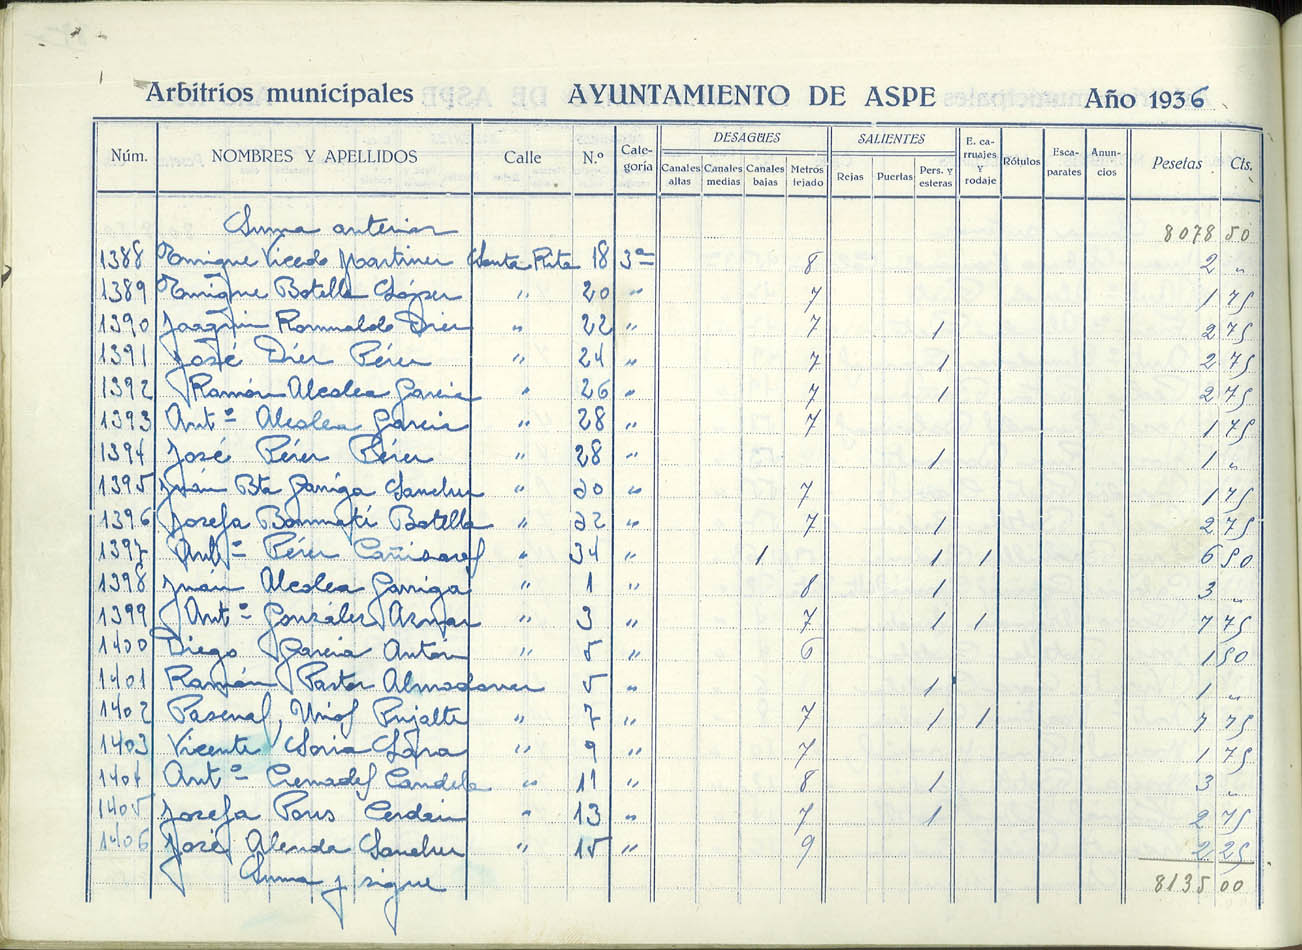 Arbitrios municipales AYUNTAMIENTO DE ASPE Año 1936
DESAGÜES SALIENTES
Núm. NOMBRES Y APELLIDOS Calle N.º Cate-goría Canales altas Canales medias Canales bajas Metros tejado Rejas Puertas Pers. y esteras E. ca-rruajes Y rodaje Rótulos Esca-parates Anun-cios Pesetas Cts.
Suma anterior 8078 50
1388 Enrique Vicedo Martinez Santa Rita 18 3ª 8 2 "
1389 Enrique Botella López " 20 " 7 1 75
1390 Joaquin Romualdo Diez " 22 " 7 1 2 75
1391 José Diez Pérez " 24 " 7 1 2 75
1392 Ramón Alcolea Garcia " 26 " 7 1 2 75
1393 Antº Alcolea Garcia " 28 " 7 1 75
1394 José Pérez Pérez " 28 " 1 1 "
1395 Juán Bta Garriga Sanchez " 30 " 7 1 75
1396 Josefa Bonmatí Botella " 32 " 7 1 2 75
1397 Antº Pérez Cañizares " 34 " 1 1 1 6 50
1398 Juán Alcolea Garriga " 1 " 8 1 3 "
1399 Antº González Aznar " 3 " 7 1 1 7 75
1400 Diego Garcia Antón " 5 " 6 1 50
1401 Ramón Pastor Almodover " 5 " 1 1 "
1402 Pascual Uriol Pujalte " 7 " 7 1 1 7 75
1403 Vicente Soria " 9 " 7 1 75
1404 Antº Cremades Candela " 11 " 8 1 3 "
1405 Josefa Pons Cerdán " 13 " 7 1 2 75
1406 José Alenda Sanchez " 15 " 9 2 25
Suma y sigue 8135 00